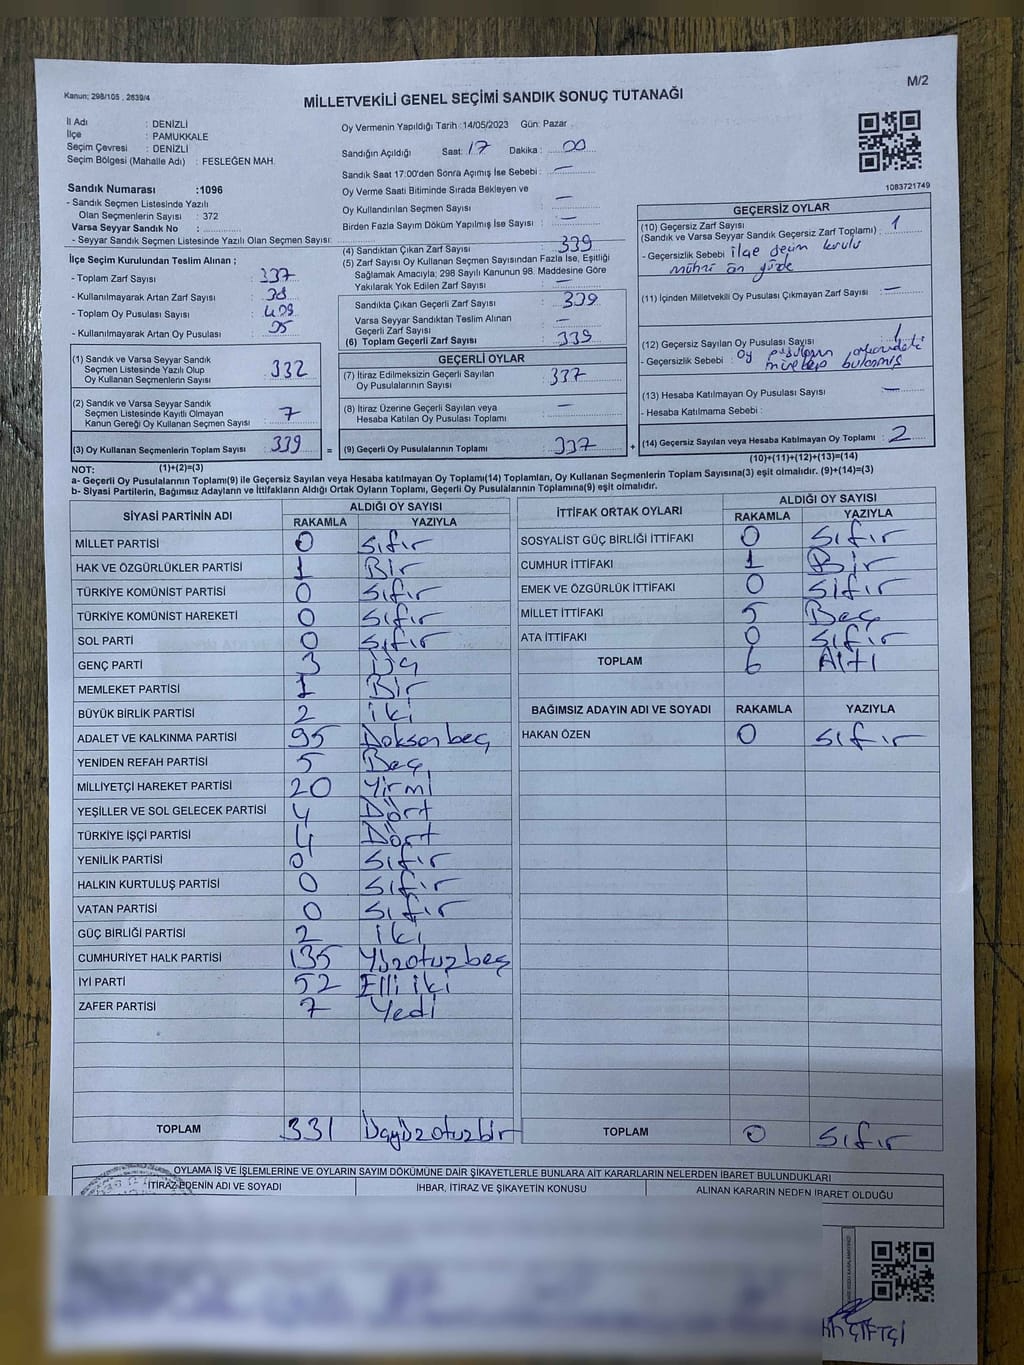 Kanun; 298/105 , 2839/4
MİLLETVEKİLİ GENEL SEÇİMİ SANDIK SONUÇ TUTANAĞI
M/2
İl Adı : DENİZLİ
İlçe : PAMUKKALE
Seçim Çevresi : DENİZLİ
Seçim Bölgesi (Mahalle Adı) : FESLEĞEN MAH.
Sandık Numarası :1096
- Sandık Seçmen Listesinde Yazılı
Olan Seçmenlerin Sayısı : 372
Varsa Seyyar Sandık No :
- Seyyar Sandık Seçmen Listesinde Yazılı Olan Seçmen Sayısı:
İlçe Seçim Kurulundan Teslim Alınan ;
- Toplam Zarf Sayısı : 337
- Kullanılmayarak Artan Zarf Sayısı :
- Toplam Oy Pusulası Sayısı :
- Kullanılmayarak Artan Oy Pusulası :
(1) Sandık ve Varsa Seyyar Sandık
Seçmen Listesinde Yazılı Olup
Oy Kullanan Seçmenlerin Sayısı : 332
(2) Sandık ve Varsa Seyyar Sandık
Seçmen Listesinde Kayıtlı Olmayan
Kanun Gereği Oy Kullanan Seçmen Sayısı : 7
(3) Oy Kullanan Seçmenlerin Toplam Sayısı : 339 =
Oy Vermenin Yapıldığı Tarih :14/05/2023 Gün: Pazar
Sandığın Açıldığı Saat: 17 Dakika : 00
Sandık Saat 17:00'den Sonra Açımış İse Sebebi : —
Oy Verme Saati Bitiminde Sırada Bekleyen ve
Oy Kullandırılan Seçmen Sayısı : —
Birden Fazla Sayım Döküm Yapılmış İse Sayısı : —
(4) Sandıktan Çıkan Zarf Sayısı : 339
(5) Zarf Sayısı Oy Kullanan Seçmen Sayısından Fazla İse, Eşitliği
Sağlamak Amacıyla; 298 Sayılı Kanunun 98. Maddesine Göre
Yakılarak Yok Edilen Zarf Sayısı : —
Sandıkta Çıkan Geçerli Zarf Sayısı : 339
Varsa Seyyar Sandıktan Teslim Alınan
Geçerli Zarf Sayısı : —
(6) Toplam Geçerli Zarf Sayısı : 339
GEÇERLİ OYLAR
(7) İtiraz Edilmeksizin Geçerli Sayılan
Oy Pusulalarının Sayısı : 337
(8) İtiraz Üzerine Geçerli Sayılan veya
Hesaba Katılan Oy Pusulası Toplamı : —
(9) Geçerli Oy Pusulalarının Toplamı : 337 +
1083721749
GEÇERSİZ OYLAR
(10) Geçersiz Zarf Sayısı : 1
(Sandık ve Varsa Seyyar Sandık Geçersiz Zarf Toplamı)
- Geçersizlik Sebebi : ilçe seçim kurulu
mührü ön yüzde
(11) İçinden Milletvekili Oy Pusulası Çıkmayan Zarf Sayısı : —
(12) Geçersiz Sayılan Oy Pusulası Sayısı : 1
- Geçersizlik Sebebi : oy bulaşmış
(13) Hesaba Katılmayan Oy Pusulası Sayısı : —
- Hesaba Katılmama Sebebi :
(14) Geçersiz Sayılan veya Hesaba Katılmayan Oy Toplamı : 2
NOT: (1)+(2)=(3) (10)+(11)+(12)+(13)=(14)
a- Geçerli Oy Pusulalarının Toplamı(9) ile Geçersiz Sayılan veya Hesaba katılmayan Oy Toplamı(14) Toplamları, Oy Kullanan Seçmenlerin Toplam Sayısına(3) eşit olmalıdır. (9)+(14)=(3)
b- Siyasi Partilerin, Bağımsız Adayların ve İttifakların Aldığı Ortak Oyların Toplamı, Geçerli Oy Pusulalarının Toplamına(9) eşit olmalıdır.
SİYASİ PARTİNİN ADI ALDIĞI OY SAYISI
RAKAMLA YAZIYLA
MİLLET PARTİSİ 0 Sıfır
HAK VE ÖZGÜRLÜKLER PARTİSİ 1 Bir
TÜRKİYE KOMÜNİST PARTİSİ 0 Sıfır
TÜRKİYE KOMÜNİST HAREKETİ 0 Sıfır
SOL PARTİ 0 Sıfır
GENÇ PARTİ 3 Üç
MEMLEKET PARTİSİ 1 Bir
BÜYÜK BİRLİK PARTİSİ 2 iki
ADALET VE KALKINMA PARTİSİ 95 Doksanbeş
YENİDEN REFAH PARTİSİ 5 Beş
MİLLİYETÇİ HAREKET PARTİSİ 20 Yirmi
YEŞİLLER VE SOL GELECEK PARTİSİ 4 Dört
TÜRKİYE İŞÇİ PARTİSİ 4 Dört
YENİLİK PARTİSİ 0 Sıfır
HALKIN KURTULUŞ PARTİSİ 0 Sıfır
VATAN PARTİSİ 0 Sıfır
GÜÇ BİRLİĞİ PARTİSİ 2 iki
CUMHURİYET HALK PARTİSİ 135 Yüzotuzbeş
İYİ PARTİ 52 Elli iki
ZAFER PARTİSİ 7 Yedi
TOPLAM 331 Üçyüzotuzbir
İTTİFAK ORTAK OYLARI ALDIĞI OY SAYISI
RAKAMLA YAZIYLA
SOSYALİST GÜÇ BİRLİĞİ İTTİFAKI 0 Sıfır
CUMHUR İTTİFAKI 1 Bir
EMEK VE ÖZGÜRLÜK İTTİFAKI 0 Sıfır
MİLLET İTTİFAKI 5 Beş
ATA İTTİFAKI 0 Sıfır
TOPLAM 6 Altı
BAĞIMSIZ ADAYIN ADI VE SOYADI RAKAMLA YAZIYLA
HAKAN ÖZEN 0 Sıfır
TOPLAM 0 Sıfır
OYLAMA İŞ VE İŞLEMLERİNE VE OYLARIN SAYIM DÖKÜMÜNE DAİR ŞİKAYETLERLE BUNLARA AİT KARARLARIN NELERDEN İBARET BULUNDUKLARI
İTİRAZ EDENİN ADI VE SOYADI İHBAR, İTİRAZ VE ŞİKAYETİN KONUSU ALINAN KARARIN NEDEN İBARET OLDUĞU
ÇİFTÇİ